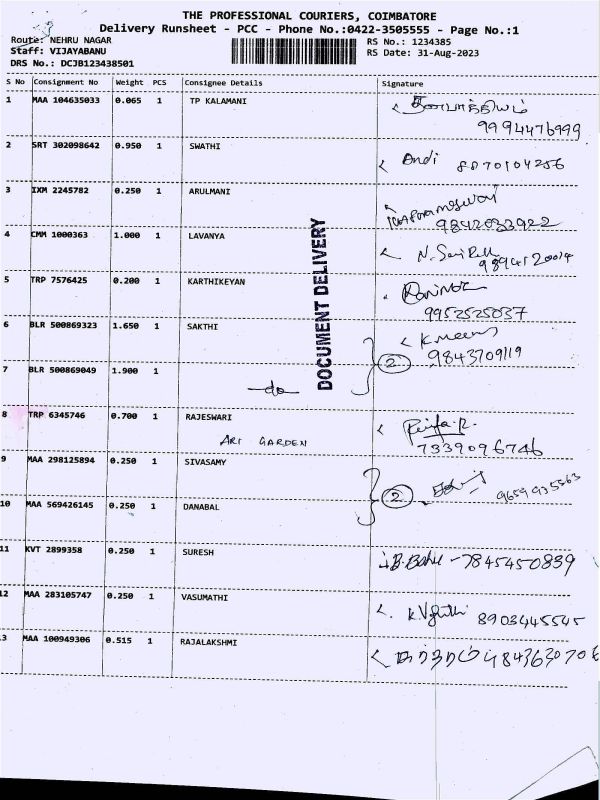 THE PROFESSIONAL COURIERS, COIMBATORE
Delivery Runsheet - PCC - Phone No.:0422-3505555 - Page No.:1
Route: NEHRU NAGAR
RS No.: 1234385
Staff: VIJAYABANU
RS Date: 31-Aug-2023
DRS No.: DCJB123438501
S No Consignment No Weight PCS Consignee Details Signature
1 MAA 104635033 0.065 1 TP KALAMANI
9994476999
2 SRT 302098642 0.950 1 SWATHI
Andi 8870104256
3 IXM 2245782 0.250 1 ARULMANI
9842033922
4 CMM 1000363 1.000 1 LAVANYA
9894120014
5 TRP 7576425 0.200 1 KARTHIKEYAN
9952525037
6 BLR 500869323 1.650 1 SAKTHI
K. Meena
9843709119
2
7 BLR 500869049 1.900 1
do
DOCUMENT DELIVERY
8 TRP 6345746 0.700 1 RAJESWARI
ARI GARDEN
7339096746
9 MAA 298125894 0.250 1 SIVASAMY
2 9659935563
10 MAA 569426145 0.250 1 DANABAL
11 KVT 2899358 0.250 1 SURESH
7845450839
12 MAA 283105747 0.250 1 VASUMATHI
8903445545
3 MAA 100949306 0.515 1 RAJALAKSHMI
9843630706